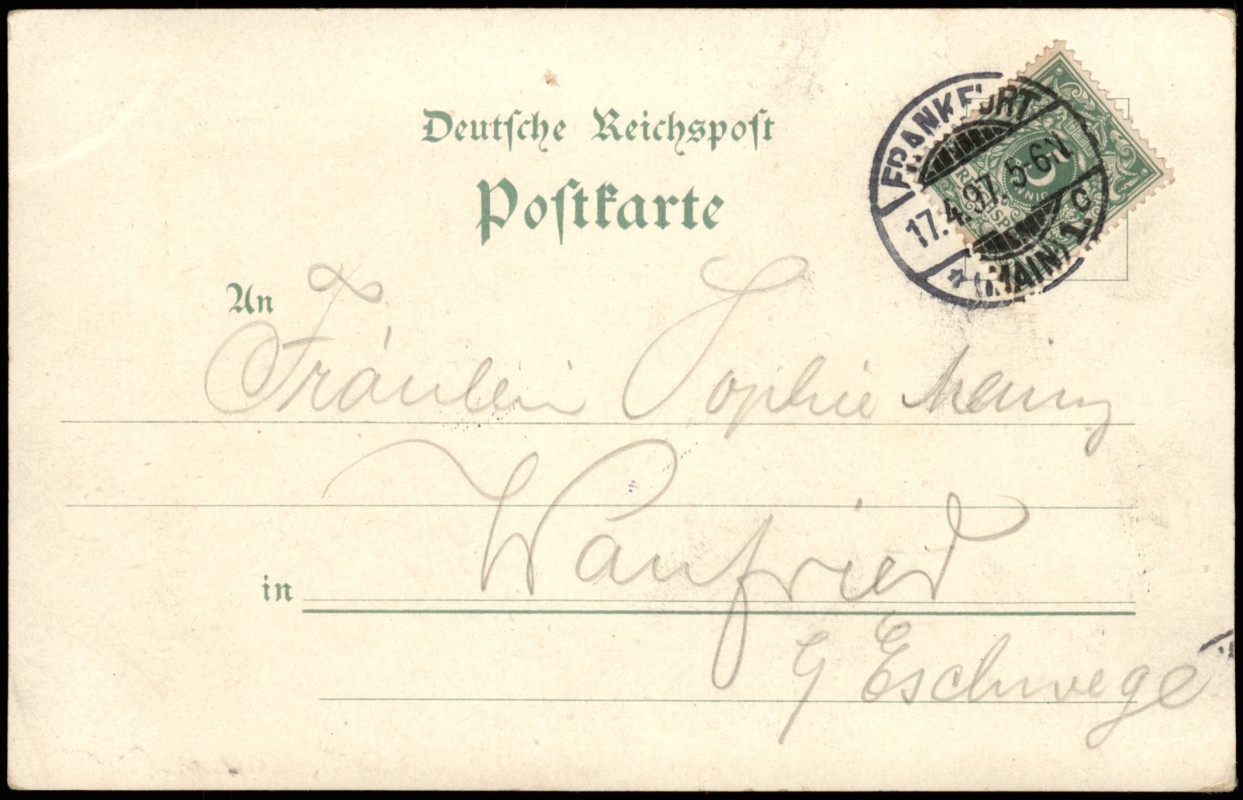 Deutsche Reichspost
Postkarte
FRANKFURT
17.4.97. 5-6N
* (MAIN) 1. c
An
Fräulein Sophie
Wanfried
in
Eschwege